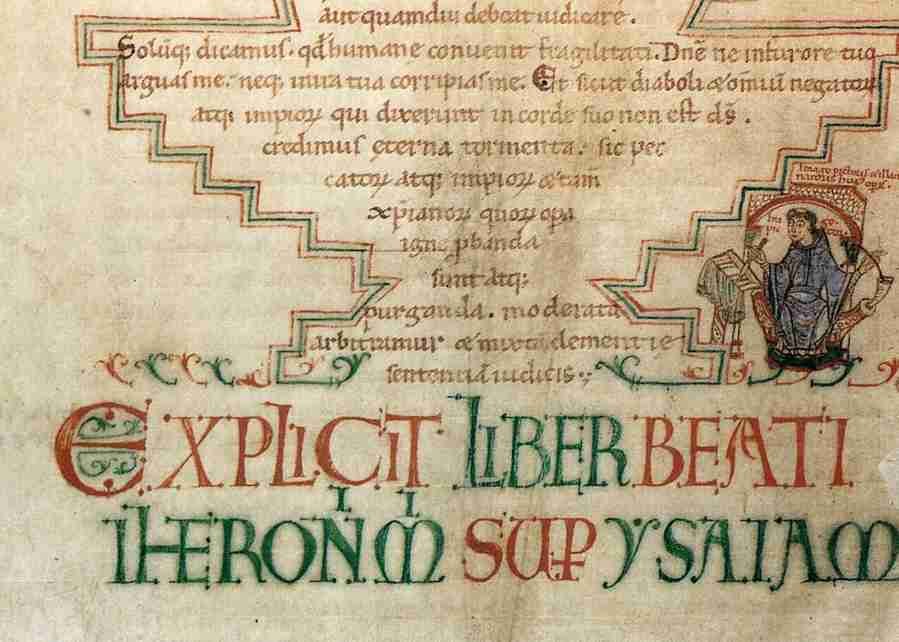 aut quamdiu debeat iudicare.
Soliq; dicamus. qđ humane conuenit fragilitati. Dñe ne in furore tuo
arguas me. neq; in ira tua corripias me. Et sicut diaboli & om̄iū negatorꝝ
atq; impiorꝝ qui dixerunt in corde suo non est d̄s.
credimus ęterna tormenta. sic pec
catorꝝ atq; impiorꝝ & tam̄
xp̄ianorꝝ quorꝝ opa
igne ꝓbanda
sunt atq;
purganda. moderatā
arbitramur & mixtā clementie
sententiā iudicis.
Imago pictoris & illuminatoris huius operis.
EXPLICIT LIBER BEATI
IHERONIMI SUꝑ YSAIAM